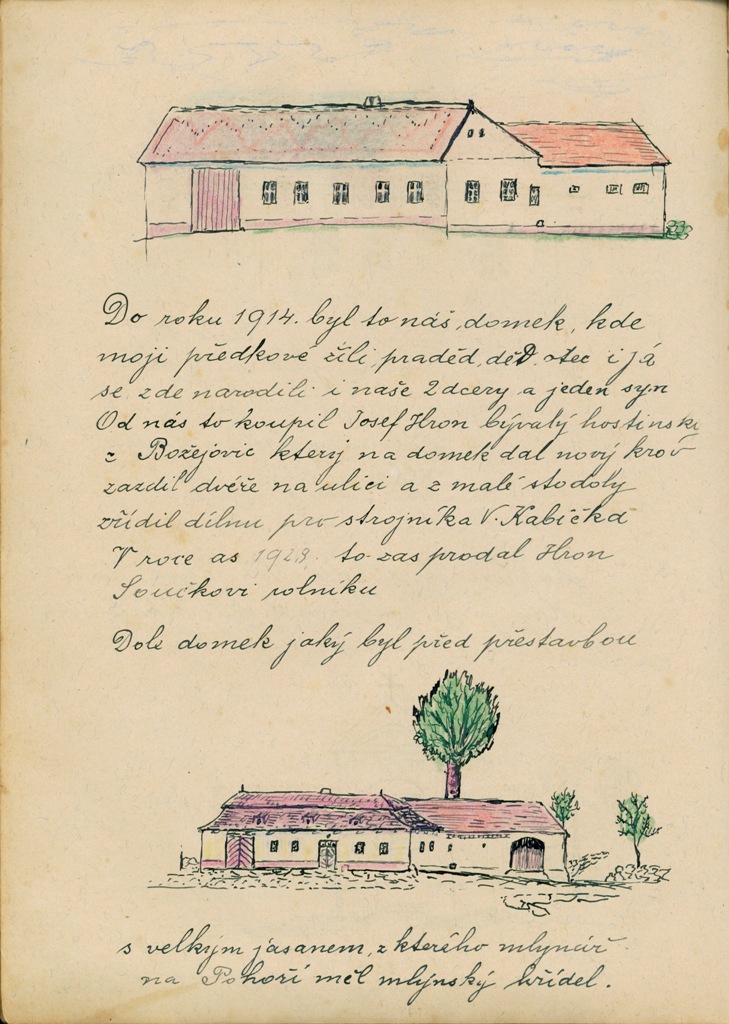 Do roku 1914. byl to náš domek, kde
moji předkové žili, praděd, děd, otec i já
se zde narodili i naše 2 dcery a jeden syn
Od nás to koupil Josef Hron bývalý hostinský
z Božejovic který na domek dal nový krov
zazdil dveře na ulici a z malé stodoly
zřídil dílnu pro strojníka V. Kabíčka
V roce as 1928. to zas prodal Hron
Součkovi rolníku
Dole domek jaký byl před přestavbou
s velkým jasanem, z kterého mlynář
na Pohoří měl mlýnský hřídel.